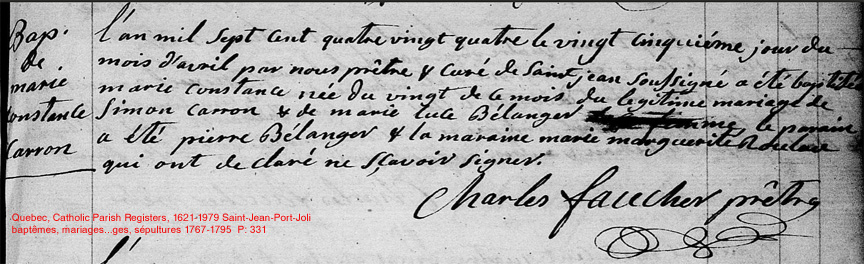 Bap.
de
marie
Constance
Carron
l'an mil sept cent quatre vingt quatre le vingt cinquiéme jour du
mois d'avril par nous prêtre & Curé de Saint jean soussigné a été baptisée
marie Constance née du vingt de ce mois du legitime mariage de
Simon Carron & de marie luce Bélanger le parain
a été pierre Bélanger & la maraine marie marguerite
qui ont de claré ne sçavoir signer.
Charles faucher prêtre
Quebec, Catholic Parish Registers, 1621-1979 Saint-Jean-Port-Joli
baptêmes, mariages...ges, sépultures 1767-1795 P: 331